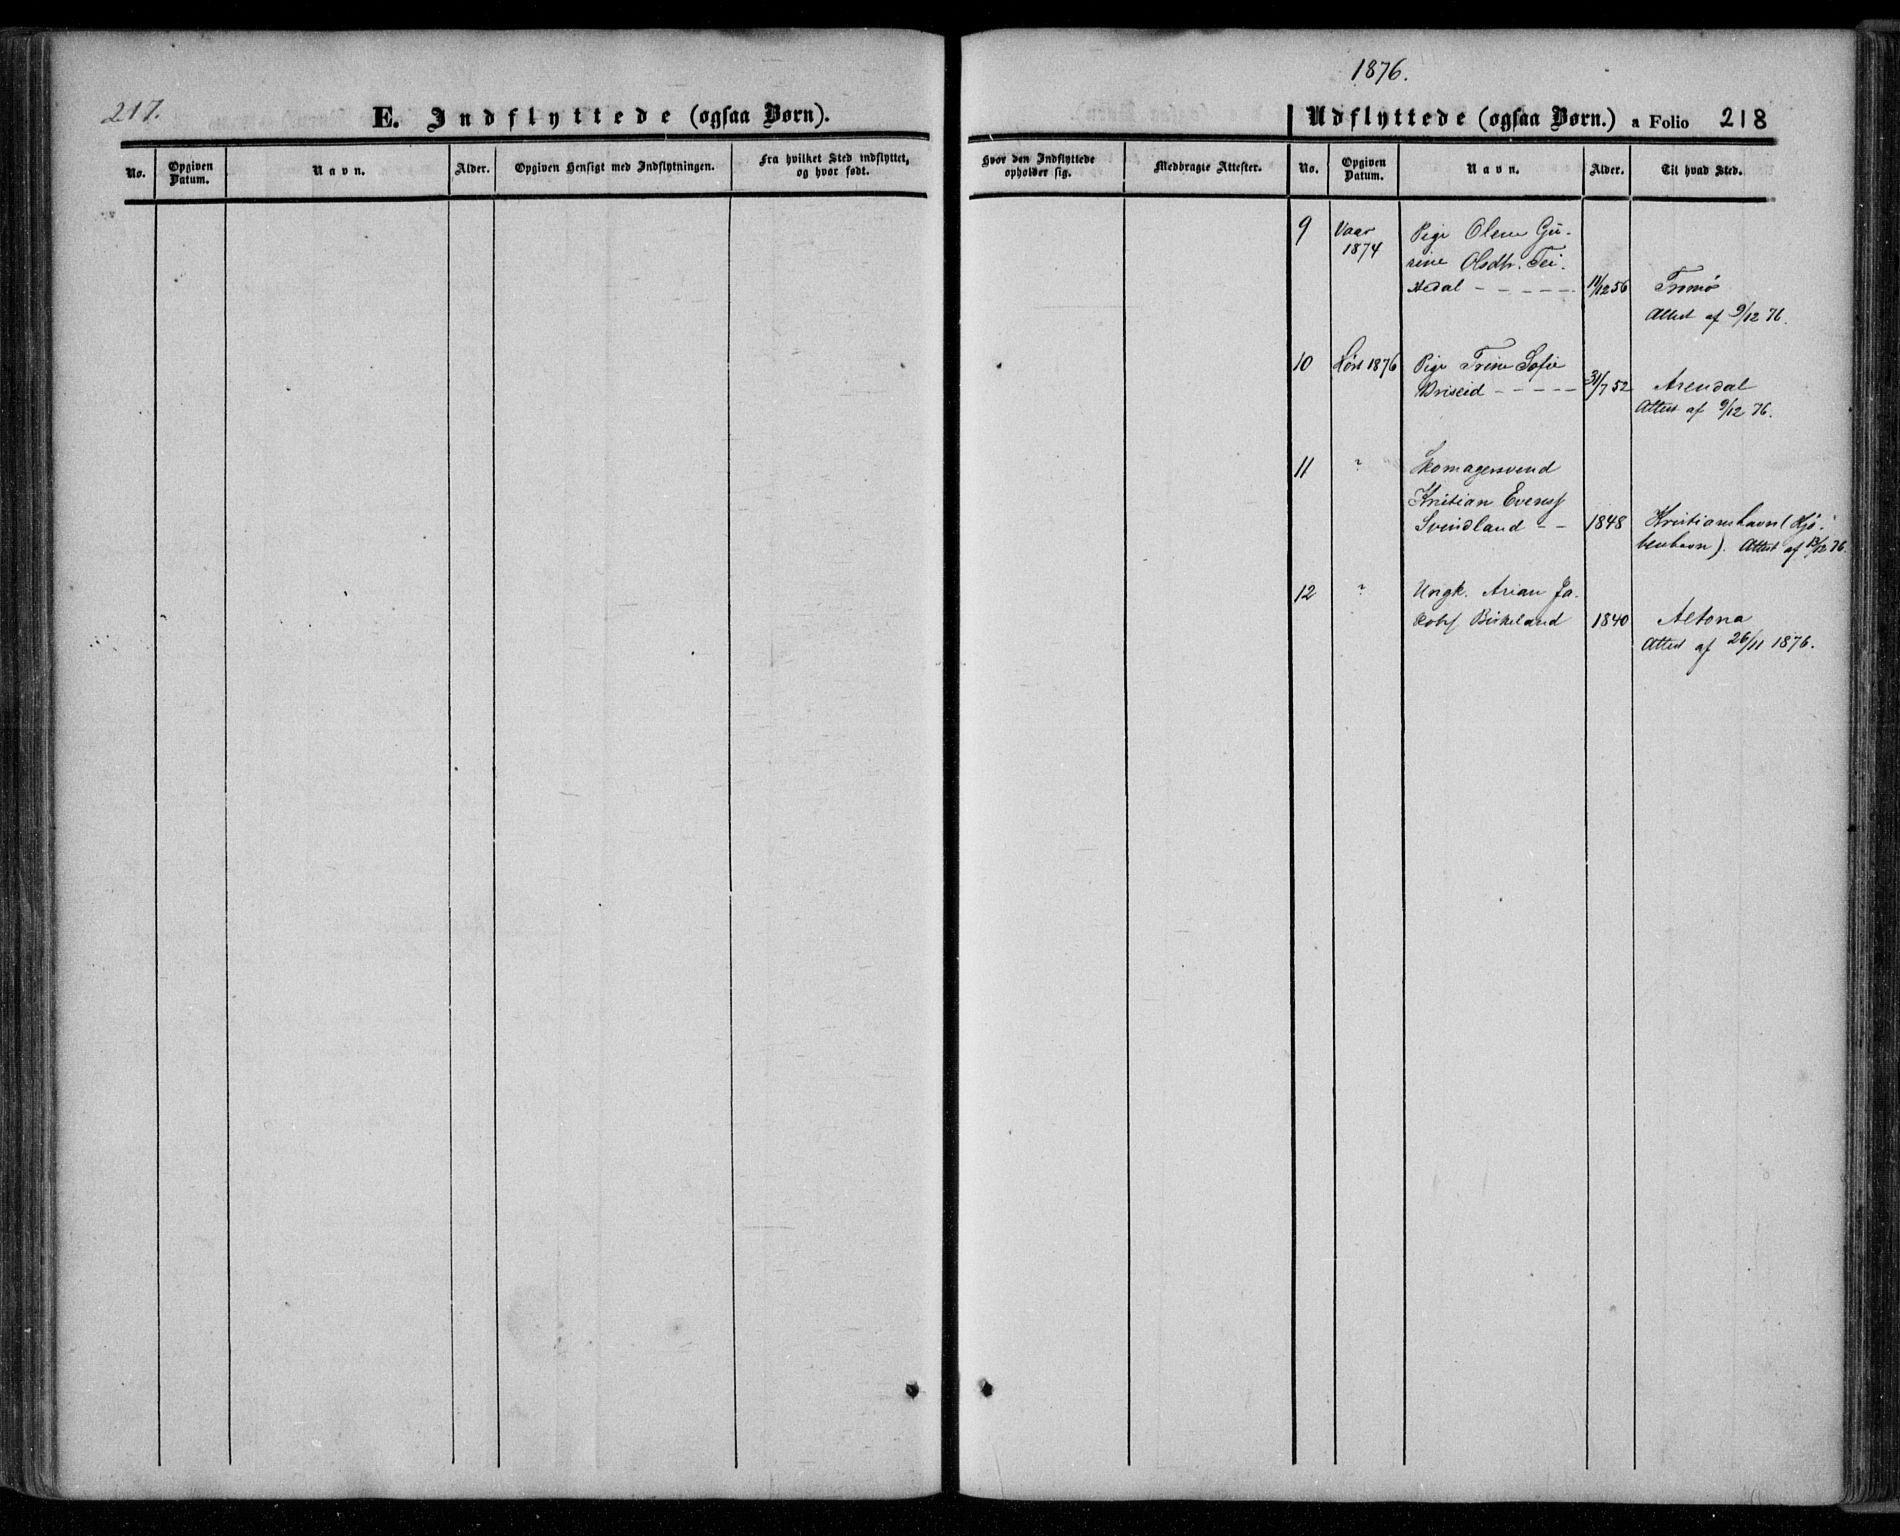 217.
E. Indflyttede (ogsaa Børn).
No.
Opgiven
Datum.
Navn.
Alder.
Opgiven Hensigt med Indflytningen.
Fra hvilket Sted indflyttet,
og hvor født.
1876.
Udflyttede (ogsaa Børn.) a Folio 218
Hvor den Indflyttede
opholder sig.
Medbragte Attester.
No.
Opgiven
Datum.
Navn.
Alder.
Til hvad Sted.
9 Vaar Pige Olene Gu-
1874 rine Olsdtr. Tei-
stedal - - - - - 11/12 56 Tromø
Attest af 9/12 76.
10 Høst 1876 Pige Trine Sofie
Briseid - - - - 31/7 52 Arendal
Attest af 9/12 76.
11 ? Skomagersvend
Kristian Evensf
Svindland - - 1848 Kristianshavn (Kjø-
benhavn). Attest af 12/12 76.
12 ? Ungk. Arian Ja-
kobsf Birkeland 1840 Altona
Attest af 26/11 1876.